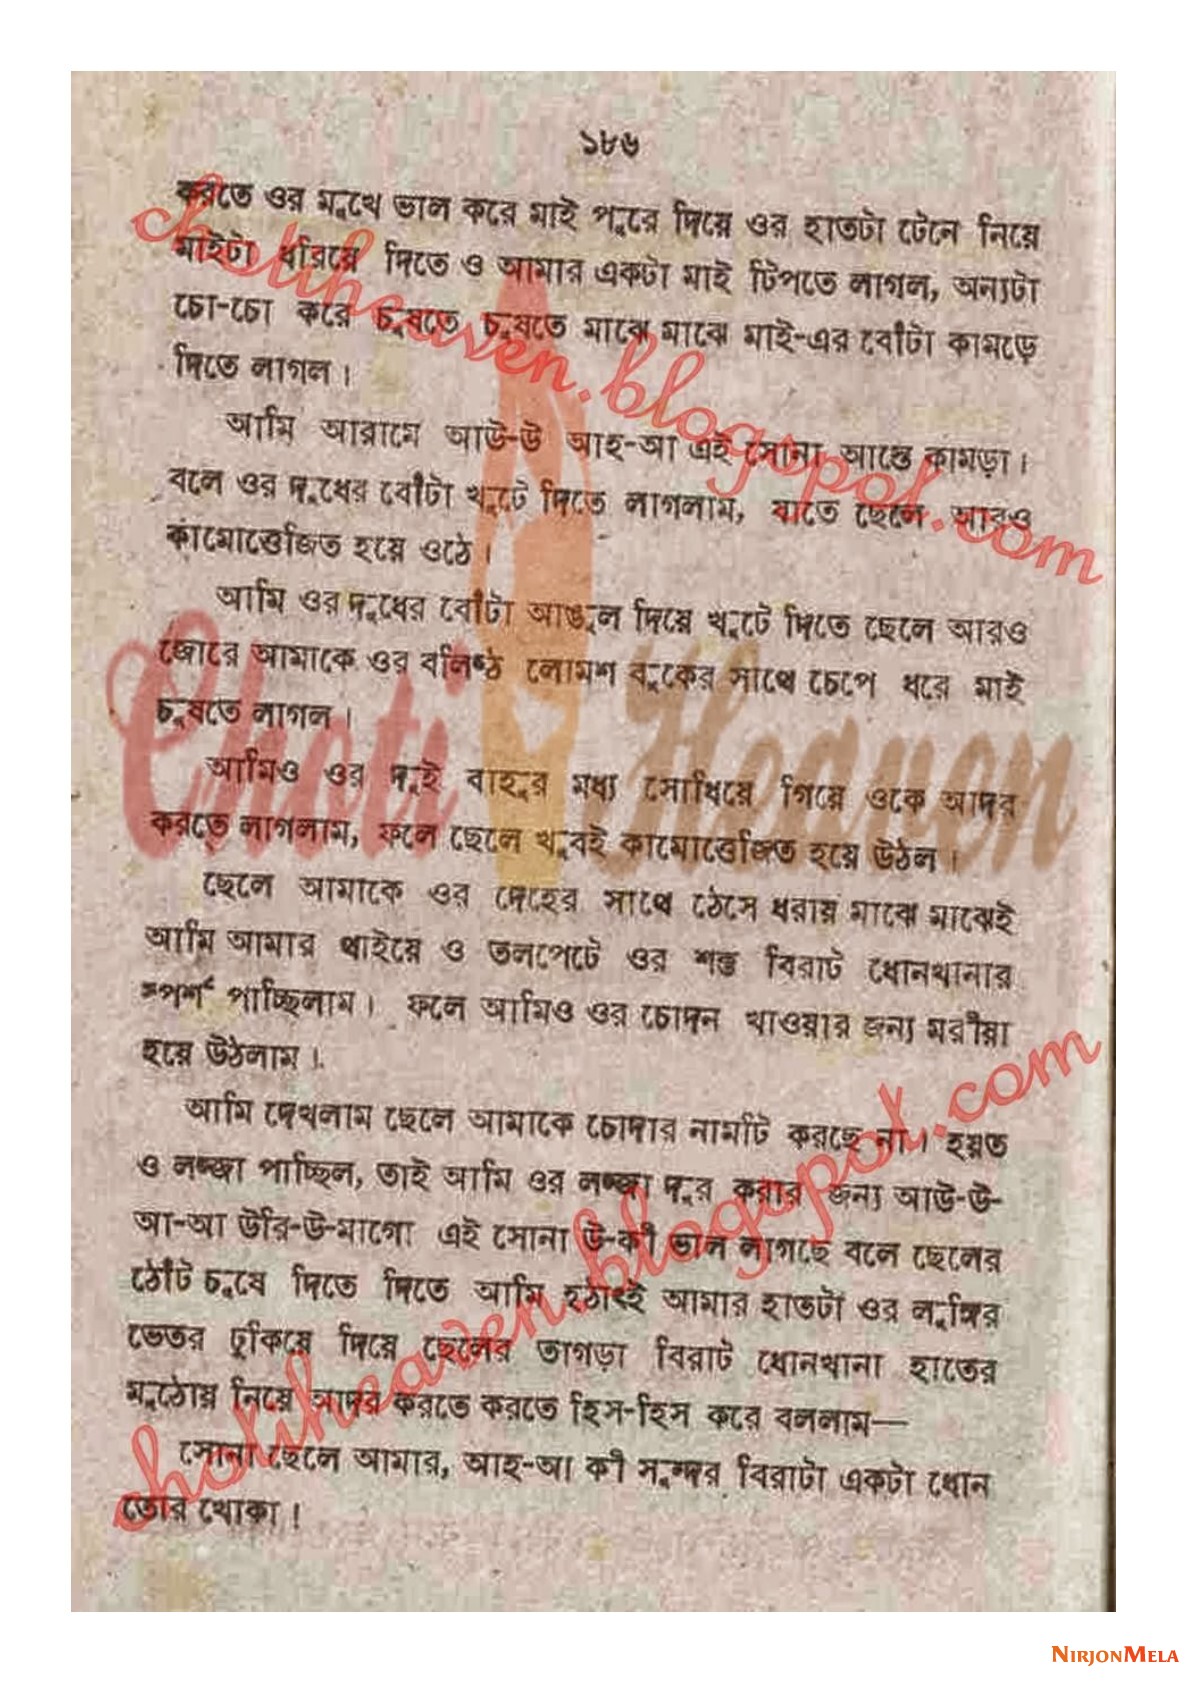 ১৮৬
করতে ওর মুখে ভাল করে মাই পুরে দিয়ে ওর হাতটা টেনে নিয়ে
মাইটা ধরিয়ে দিতে ও আমার একটা মাই টিপতে লাগল, অন্যটা
চো-চো করে চুষতে চুষতে মাঝে মাঝে মাই-এর বোঁটা কামড়ে
দিতে লাগল।
আমি আরামে আউ-উ আহ-আ এই সোনা আস্তে কামড়া।
বলে ওর দুধের বোঁটা খুটে দিতে লাগলাম, যাতে ছেলে আরও
কামোত্তেজিত হয়ে ওঠে।
আমি ওর দুধের বোঁটা আঙুল দিয়ে খুটে দিতে ছেলে আরও
জোরে আমাকে ওর বলিষ্ঠ লোমশ বুকের সাথে চেপে ধরে মাই
চুষতে লাগল।
আমিও ওর দুই বাহুর মধ্য সেধিয়ে গিয়ে ওকে আদর
করতে লাগলাম, ফলে ছেলে খুবই কামোত্তেজিত হয়ে উঠল।
ছেলে আমাকে ওর দেহের সাথে ঠেসে ধরায় মাঝে মাঝেই
আমি আমার থাইয়ে ও তলপেটে ওর শক্ত বিরাট ধোনখানার
স্পর্শ পাচ্ছিলাম। ফলে আমিও ওর চোদন খাওয়ার জন্য মরীয়া
হয়ে উঠলাম।
আমি দেখলাম ছেলে আমাকে চোদার নামটি করছে না। হয়ত
ও লজ্জা পাচ্ছিল, তাই আমি ওর লজ্জা দূর করার জন্য আউ-উ-
আ-আ উরি-উ-মাগো এই সোনা উ-কী ভাল লাগছে বলে ছেলের
ঠোঁট চুষে দিতে দিতে আমি হঠাৎই আমার হাতটা ওর লুঙ্গির
ভেতর ঢুকিয়ে দিয়ে ছেলের তাগড়া বিরাট ধোনখানা হাতের
মুঠোয় নিয়ে আদর করতে করতে হিস-হিস করে বললাম—
সোনা ছেলে আমার, আহ-আ কী সুন্দর বিরাটা একটা ধোন
তোর খোকা!
chotiheaven.blogspot.com
Choti Heaven
chotiheaven.blogspot.com
NIRJONMELA